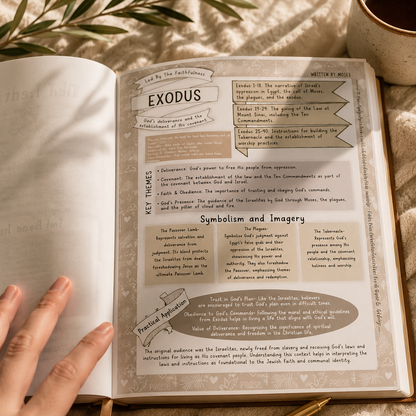 Led By The Faithfulness
WRITTEN BY MOSES
EXODUS
God's deliverance and the
establishment of his covenant
Exodus 1-18: The narrative of Israel's
oppression in Egypt, the call of Moses,
the plagues, and the exodus.
Exodus 19-24: The giving of the law at
Mount Sinai, including the Ten
Commandments.
Exodus 25-40: Instructions for building the
Tabernacle and the establishment of
worship practices.
KEY THEMES
• Deliverance: God's power to free His people from oppression.
• Covenant: The establishment of the law and the Ten Commandments as part of
the covenant between God and Israel.
• Faith & Obedience: The importance of trusting and obeying God's commands.
• God's Presence: The guidance of the Israelites by God through Moses, the plagues,
and the pillar of cloud and fire.
Symbolism and Imagery
The Passover Lamb-
Represents salvation and
deliverance from
judgment. Its blood protects
the Israelites from death,
foreshadowing Jesus as the
ultimate Passover Lamb.
The Plagues-
Symbolize God's judgment against
Egypt's false gods and their
oppression of the Israelites,
showcasing His power and
authority. They also foreshadow
the Passover, emphasizing themes
of deliverance and redemption.
The Tabernacle-
Represents God's
presence among His
people and the covenant
relationship, emphasizing
holiness and worship
Practical Application
Trust in God's Plan- Like the Israelites, believers
are encouraged to trust God's plan even in difficult times.
Obedience to God's Commands- Following the moral and ethical guidelines
from Exodus helps in living a life that aligns with God's will.
Value of Deliverance- Recognizing the significance of spiritual
deliverance and freedom in the Christian life.
The original audience was the Israelites, newly freed from slavery and receiving God's laws and
instructions for living as His covenant people. Understanding this context helps in interpreting the
laws and instructions as foundational to the Jewish faith and communal identity.